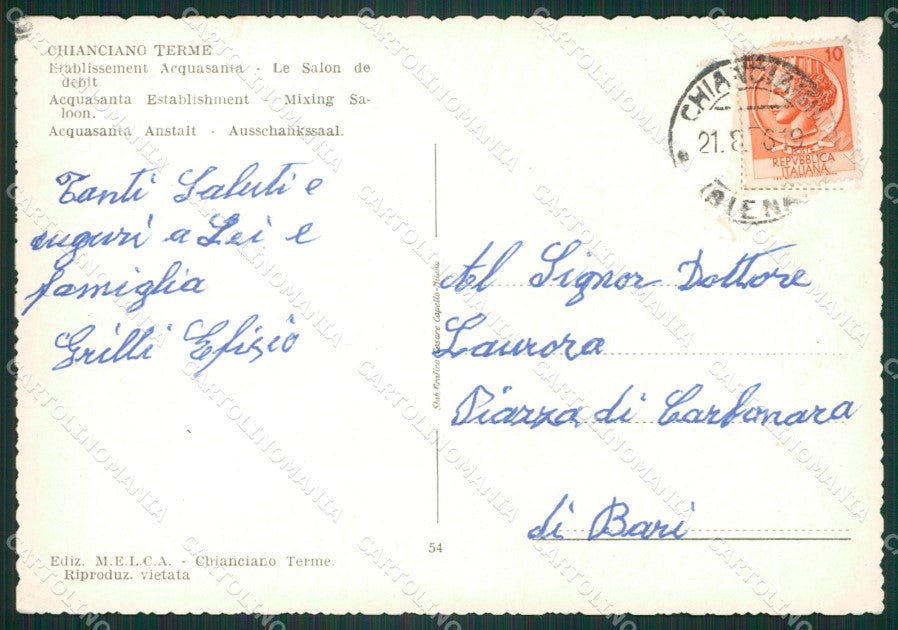 CHIANCIANO TERME
Etablissement Acquasanta - Le Salon de
debit
Acquasanta Establishment - Mixing Sa-
loon.
Acquasanta Anstalt - Ausschankssaal.
Tanti Saluti e
auguri a Lei e
famiglia
Grilli Efisio
10
REPVBBLICA
ITALIANA
21.8.5619
(SIENA
Al Signor Dottore
Laurora
Piazza di Carbonara
di Bari
Stab. Grafico Cesare Capello-Milano
54
Ediz. M.E.L.C.A. - Chianciano Terme.
Riproduz. vietata
CARTOLINOMANIA